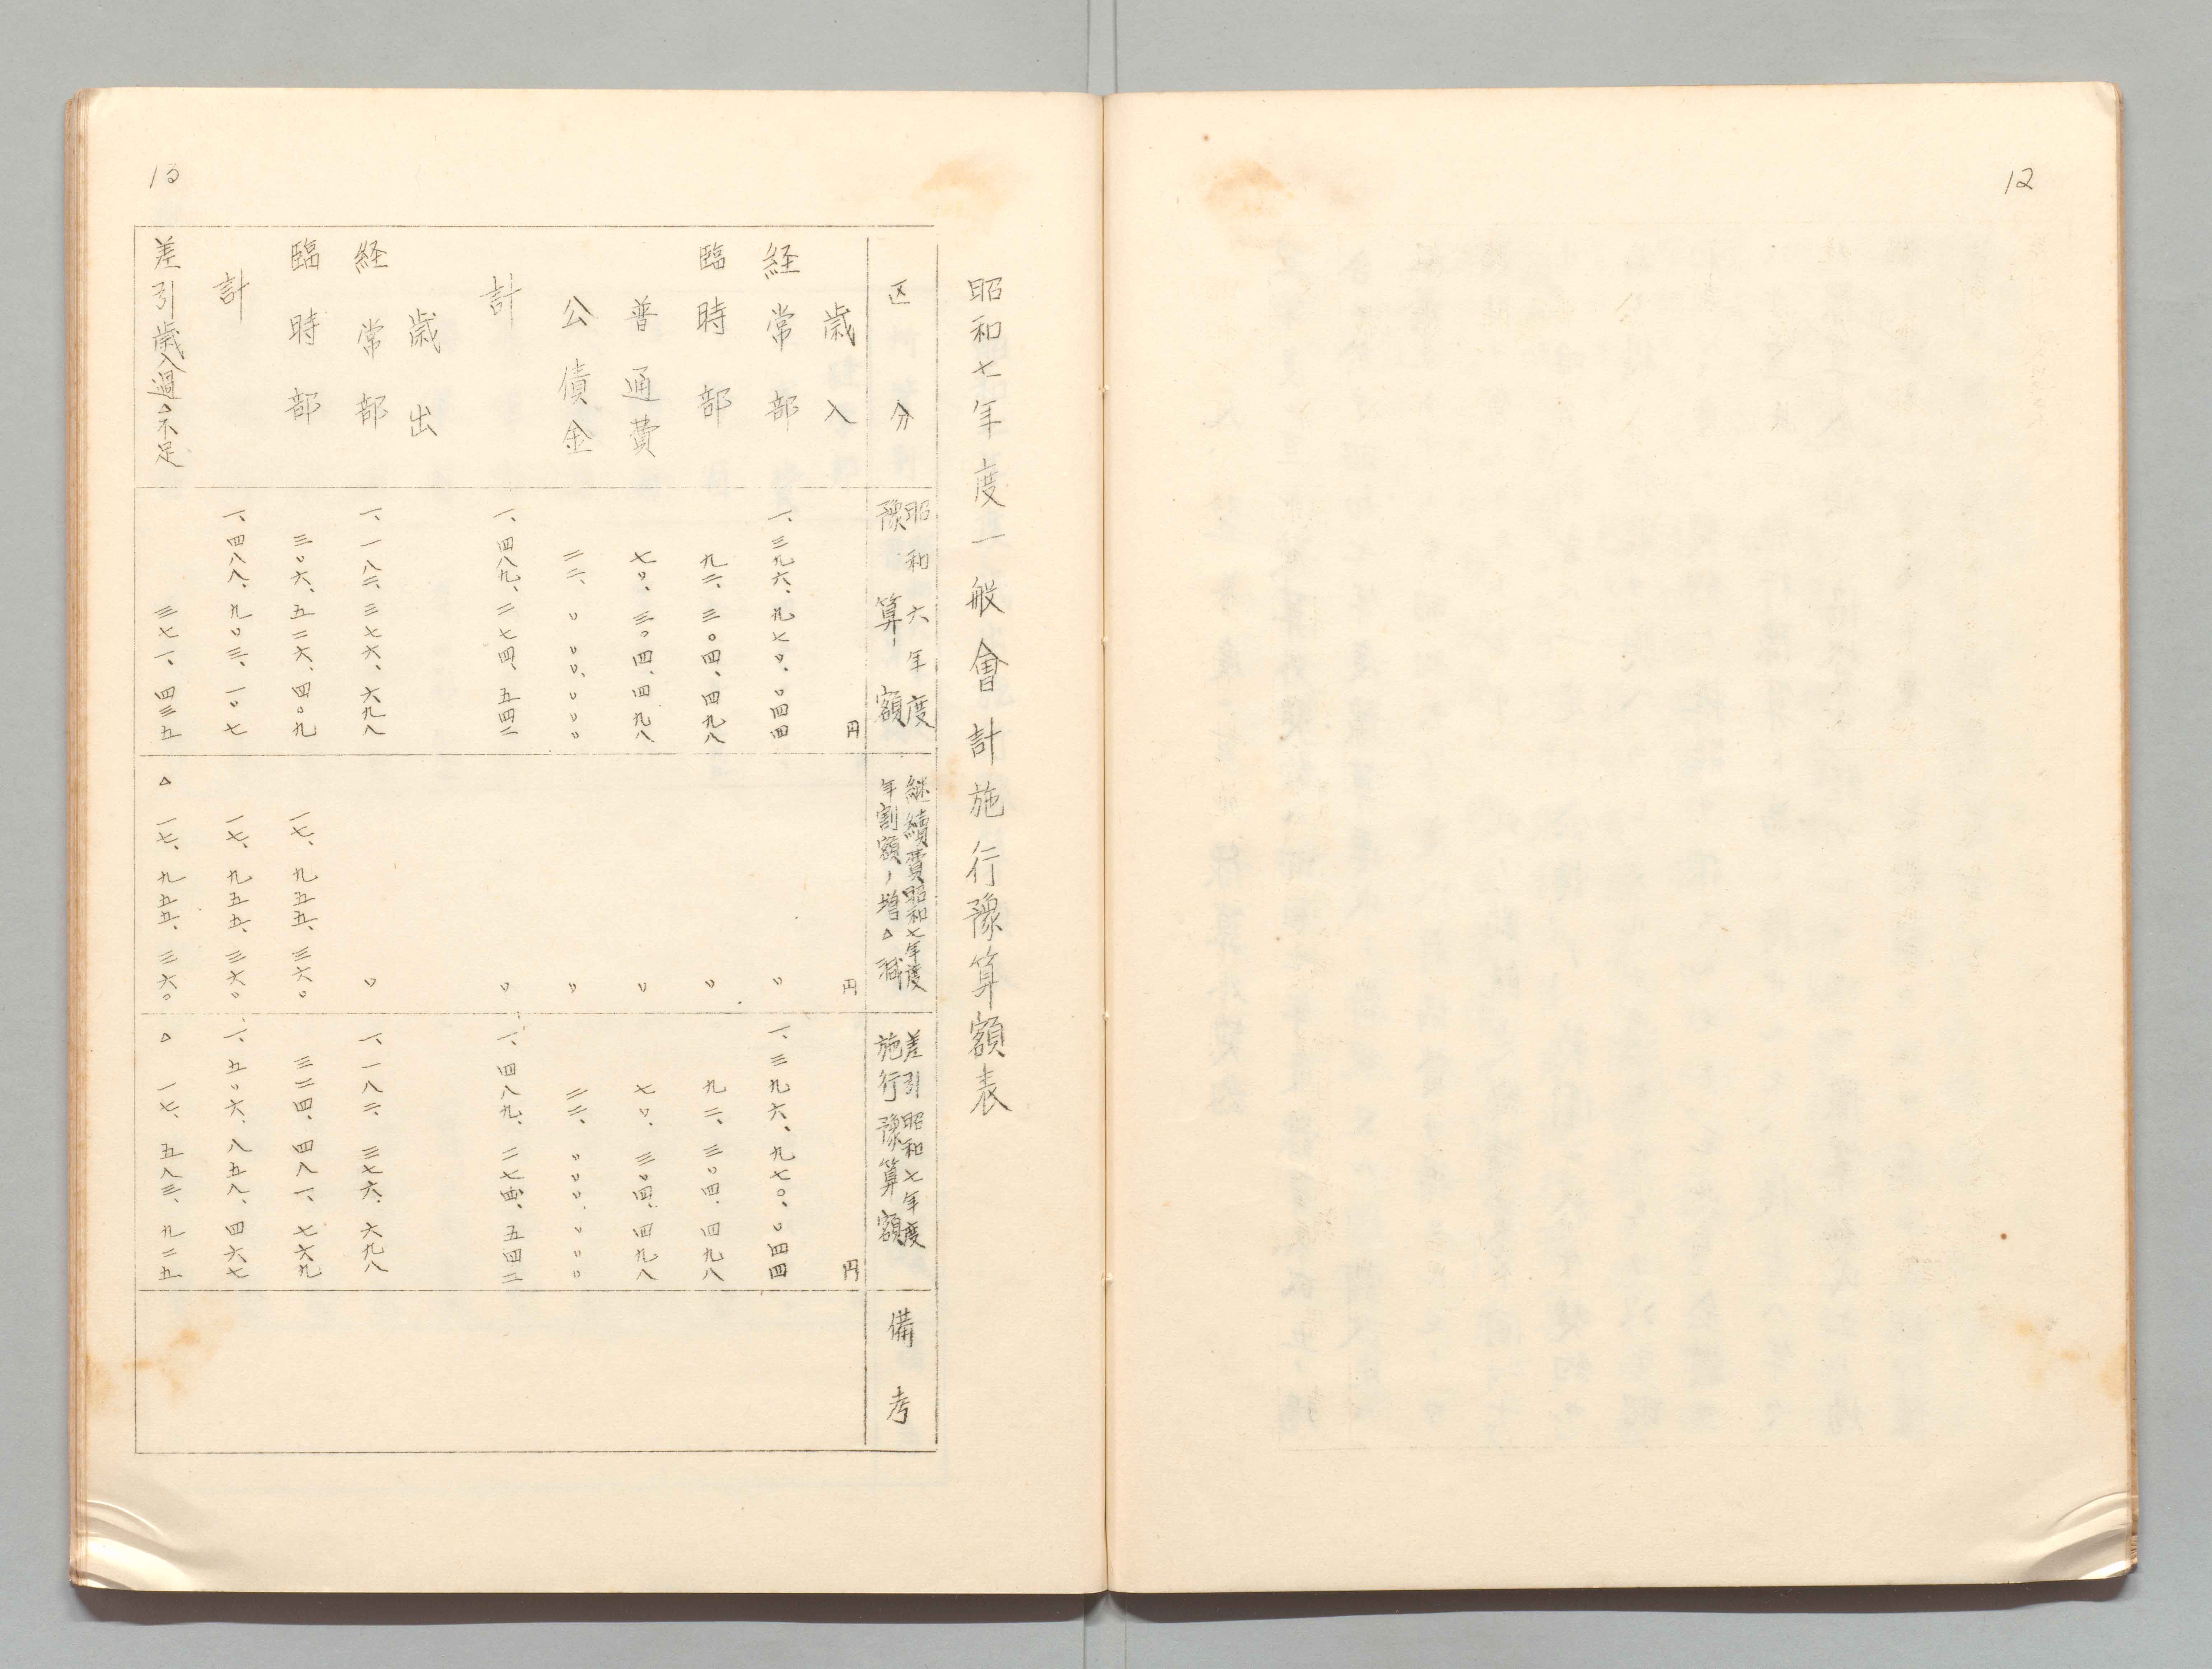 12
13
昭和七年度一般會計施行豫算額表
区分
昭和六年度
豫算額
継續費昭和七年度
年割額ノ増△減
差引昭和七年度
施行豫算額
備考
歳入 円 円 円
経常部 一、三九六、九七〇、〇四四 〇 一、三九六、九七〇、〇四四
臨時部 九二、三〇四、四九八 〇 九二、三〇四、四九八
普通費 七〇、三〇四、四九八 〇 七〇、三〇四、四九八
公債金 二二、〇〇〇、〇〇〇 〇 二二、〇〇〇、〇〇〇
計 一、四八九、二七四、五四二 〇 一、四八九、二七四、五四二
歳出
経常部 一、一八二、三七六、六九八 〇 一、一八二、三七六、六九八
臨時部 三〇六、五二六、四〇九 一七、九五五、三六〇 三二四、四八一、七六九
計 一、四八八、九〇三、一〇七 一七、九五五、三六〇 一、五〇六、八五八、四六七
差引歳入過△不足 三七一、四三五 △一七、九五五、三六〇 △一七、五八三、九二五